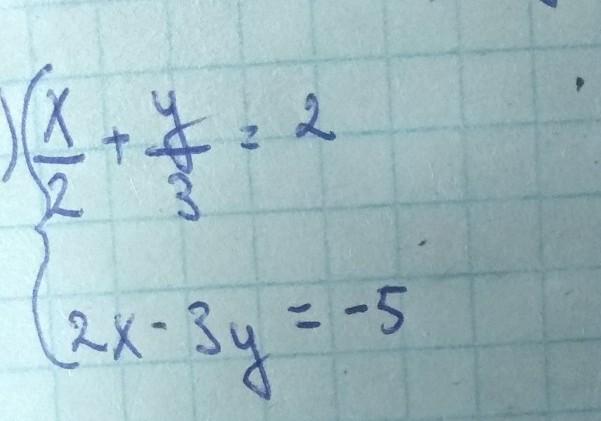 ) { x/2 + y/3 = 2
2x - 3y = -5